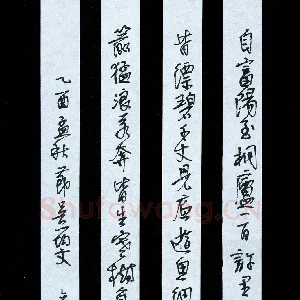 自富陽至桐廬一百許里
皆縹碧千丈見底遊魚細
箭猛浪若奔皆生寒樹負
乙酉孟秋節吳均文
Shufawang.cn